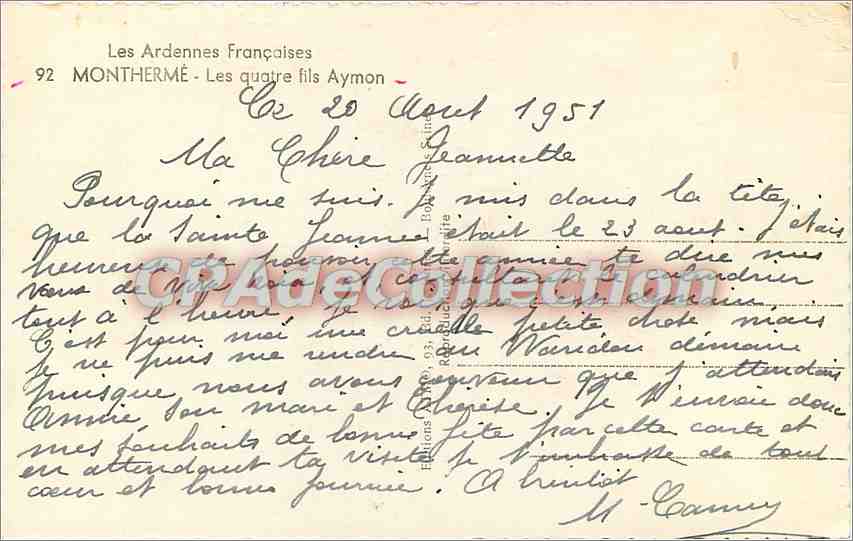 Les Ardennes Françaises
92 MONTHERMÉ - Les quatre fils Aymon
Ce 20 Aout 1951
Ma Chère Jeannette
Pourquoi me suis-je mis dans la tête
que la Sainte Jeanne était le 23 aout. J'étais
heureuse de pouvoir cette année te dire mes
vœux de vive voix et consultant le calendrier
tout à l'heure, je vois que c'est demain.
C'est pour moi une cruelle petite chose mais
je ne puis me rendre au Waridon demain
puisque nous avons convenu que j'attendais
Annie, son mari et Thérèse. Je t'envoie donc
mes souhaits de bonne fête par cette carte et
en attendant ta visite je t'embrasse de tout
cœur et bonne journée. A bientôt
M.
Editions 93, Bd.
Reproduction
CPAdeCollection